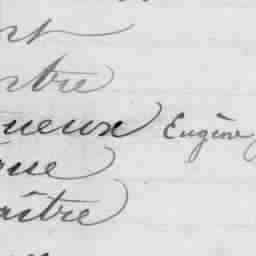 rt
stre
ueux Eugène
que
aître